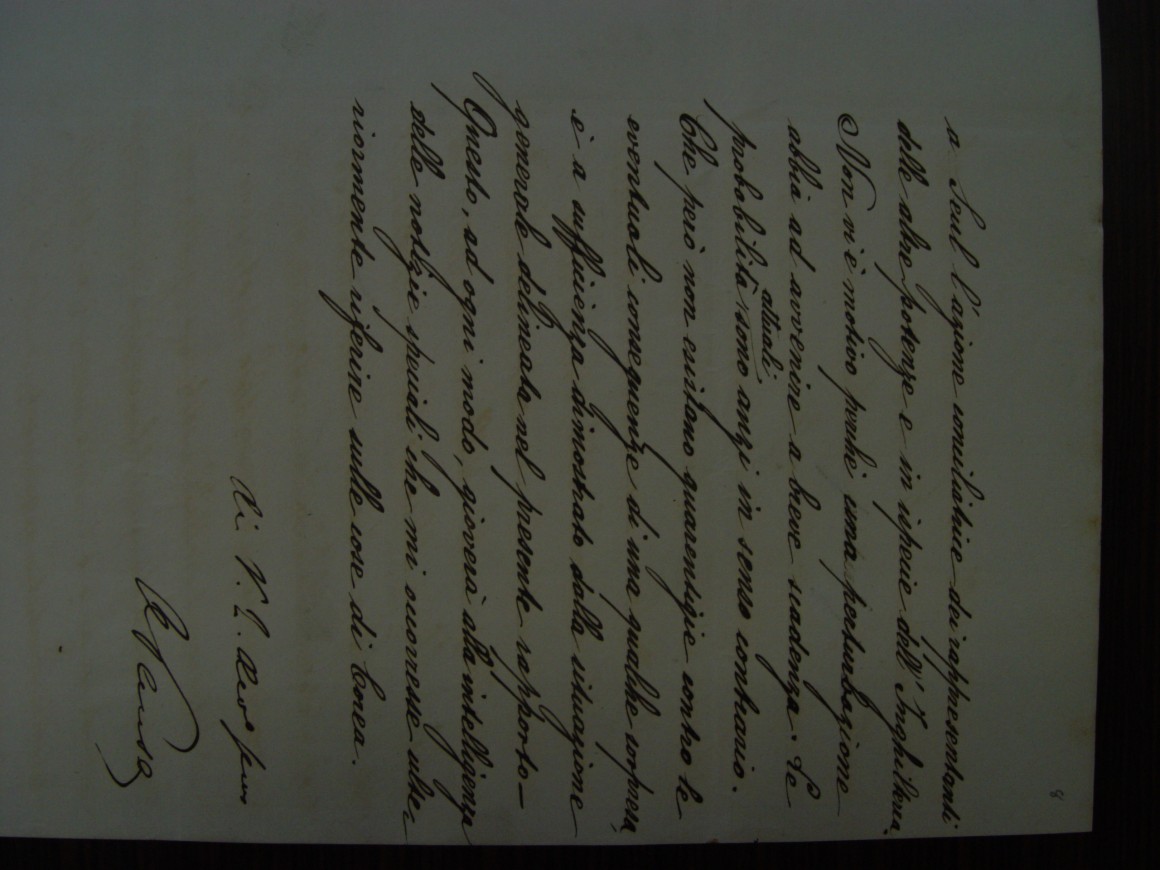 8
a Seul l'azione conciliatrice dei rappresentanti
delle altre potenze e in ispecie dell'Inghilterra.
Non vi è motivo perché una perturbazione
abbia ad avvenire a breve scadenza. Le
probabilità attuali sono anzi in senso contrario.
Che però non esistano guarentigie contro le
eventuali conseguenze di una qualche sorpresa,
è a sufficienza dimostrato dalla situazione
generale delineata nel presente rapporto—
Questo, ad ogni modo, gioverà alla intelligenza
delle notizie speciali che mi occorresse ulte-
riormente riferire sulle cose di Corea.
Di V. E.